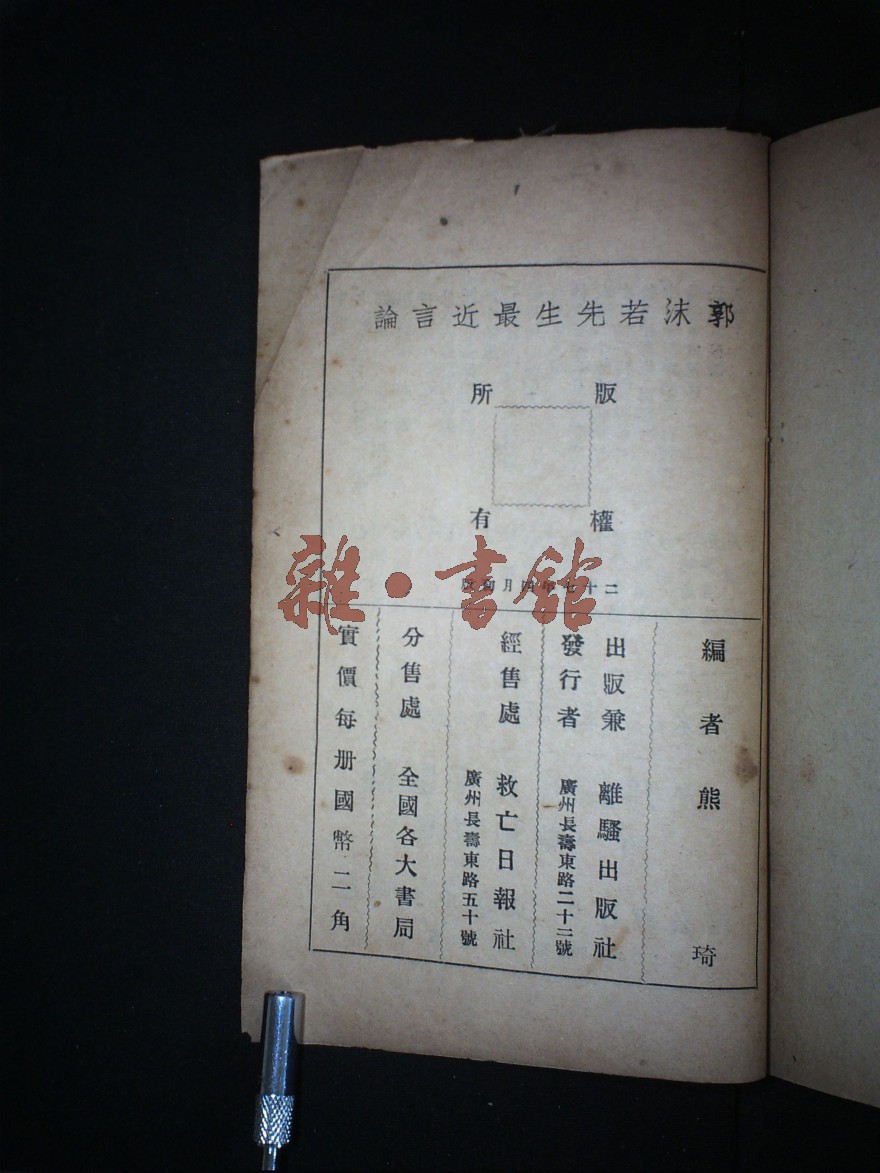 郭沫若先生最近言論
版權所有
二十七年四月初版
編者熊琦
出版兼發行者
離騷出版社
廣州長壽東路二十二號
經售處
救亡日報社
廣州長壽東路五十號
分售處 全國各大書局
實價每册國幣二角
雜·書館